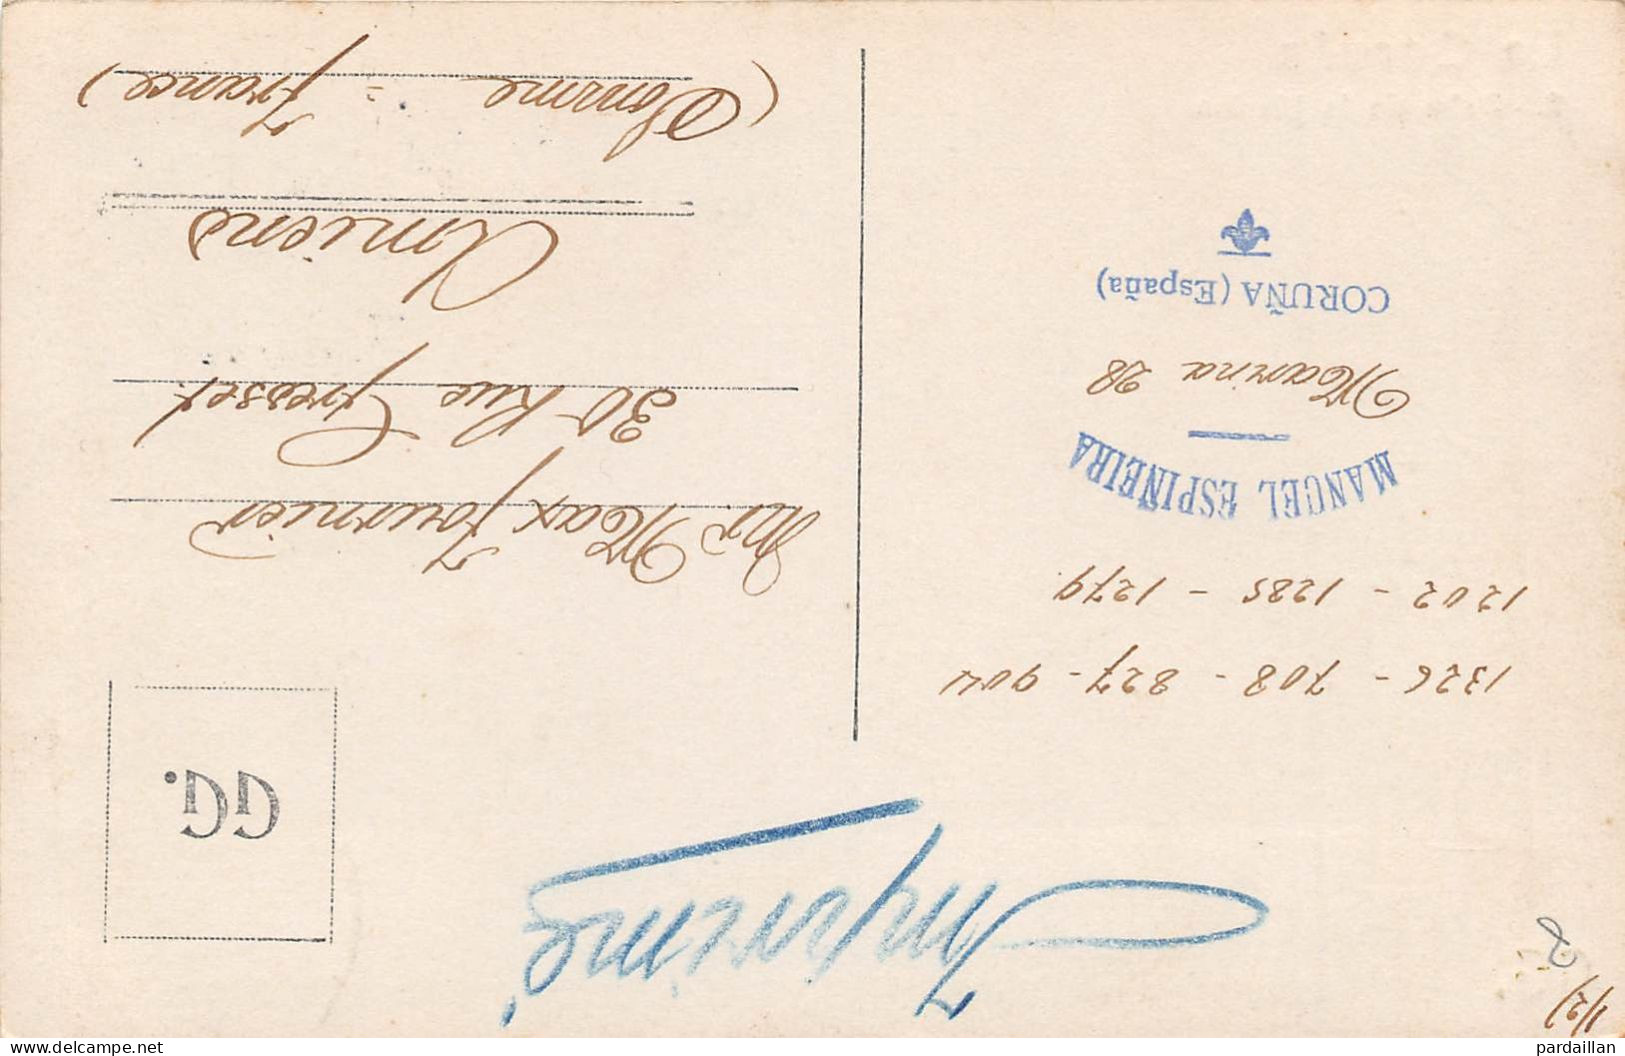 Imprimé
GG.
1326 - 708 - 827 - 904
1202 - 1285 - 1279
MANUEL ESPIÑEIRA
Marina 28
CORUÑA (España)
Mr. Max Fournier
30 Rue Gresset
Amiens
(Somme = France)
2
delcampe.net
pardaillan